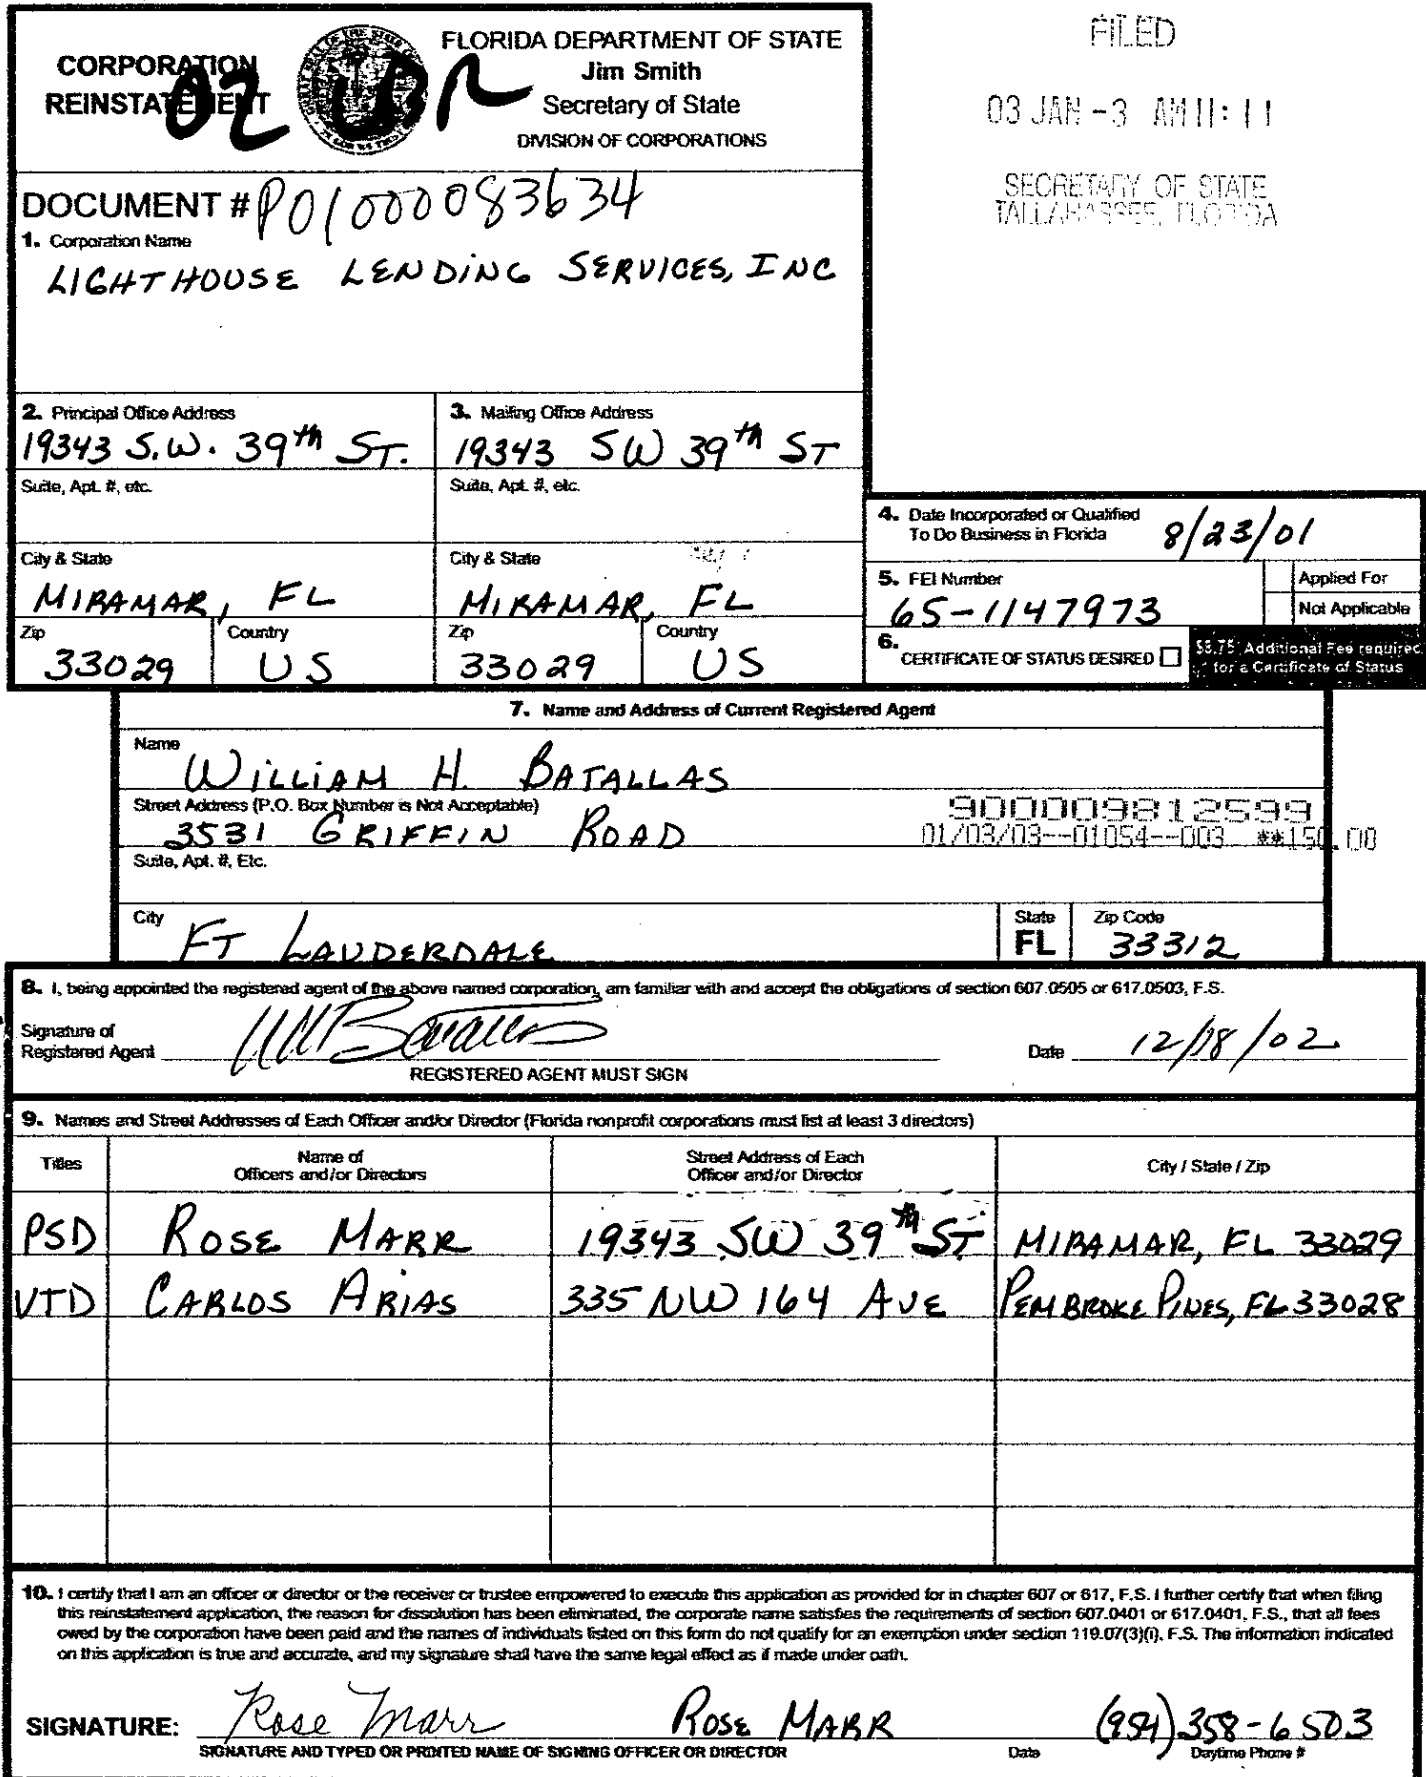 CORPORATION
REINSTATEMENT
02 UBR
FLORIDA DEPARTMENT OF STATE
Jim Smith
Secretary of State
DIVISION OF CORPORATIONS
FILED
03 JAN -3 AM 11: 11
SECRETARY OF STATE
TALLAHASSEE, FLORIDA
DOCUMENT # P01000083634
1. Corporation Name
LIGHTHOUSE LENDING SERVICES, INC
2. Principal Office Address
19343 S.W. 39th ST.
Suite, Apt. #, etc.
City & State
MIRAMAR, FL
Zip
33029
Country
US
3. Mailing Office Address
19343 SW 39th ST
Suite, Apt. #, etc.
City & State
MIRAMAR, FL
Zip
33029
Country
US
4. Date Incorporated or Qualified
To Do Business in Florida
8/23/01
5. FEI Number
65-1147973
Applied For
Not Applicable
6. CERTIFICATE OF STATUS DESIRED
$8.75 Additional Fee required
for a Certificate of Status
7. Name and Address of Current Registered Agent
Name
WILLIAM H. BATALLAS
Street Address (P.O. Box Number is Not Acceptable)
3531 GRIFFIN ROAD
900009812599
01/03/03--01054--003 **150.00
Suite, Apt. #, Etc.
City
FT LAUDERDALE
State
FL
Zip Code
33312
8. I, being appointed the registered agent of the above named corporation, am familiar with and accept the obligations of section 607.0505 or 617.0503, F.S.
Signature of
Registered Agent
Date 12/18/02
REGISTERED AGENT MUST SIGN
9. Names and Street Addresses of Each Officer and/or Director (Florida nonprofit corporations must list at least 3 directors)
Titles
Name of
Officers and/or Directors
Street Address of Each
Officer and/or Director
City / State / Zip
PSD ROSE MARR 19343 SW 39th ST MIRAMAR, FL 33029
VTD CARLOS ARIAS 335 NW 164 AVE PEMBROKE PINES, FL 33028
10. I certify that I am an officer or director or the receiver or trustee empowered to execute this application as provided for in chapter 607 or 617, F.S. I further certify that when filing
this reinstatement application, the reason for dissolution has been eliminated, the corporate name satisfies the requirements of section 607.0401 or 617.0401, F.S., that all fees
owed by the corporation have been paid and the names of individuals listed on this form do not qualify for an exemption under section 119.07(3)(i), F.S. The information indicated
on this application is true and accurate, and my signature shall have the same legal effect as if made under oath.
SIGNATURE: Rose Marr ROSE MARR (954) 358-6503
SIGNATURE AND TYPED OR PRINTED NAME OF SIGNING OFFICER OR DIRECTOR
Date
Daytime Phone #